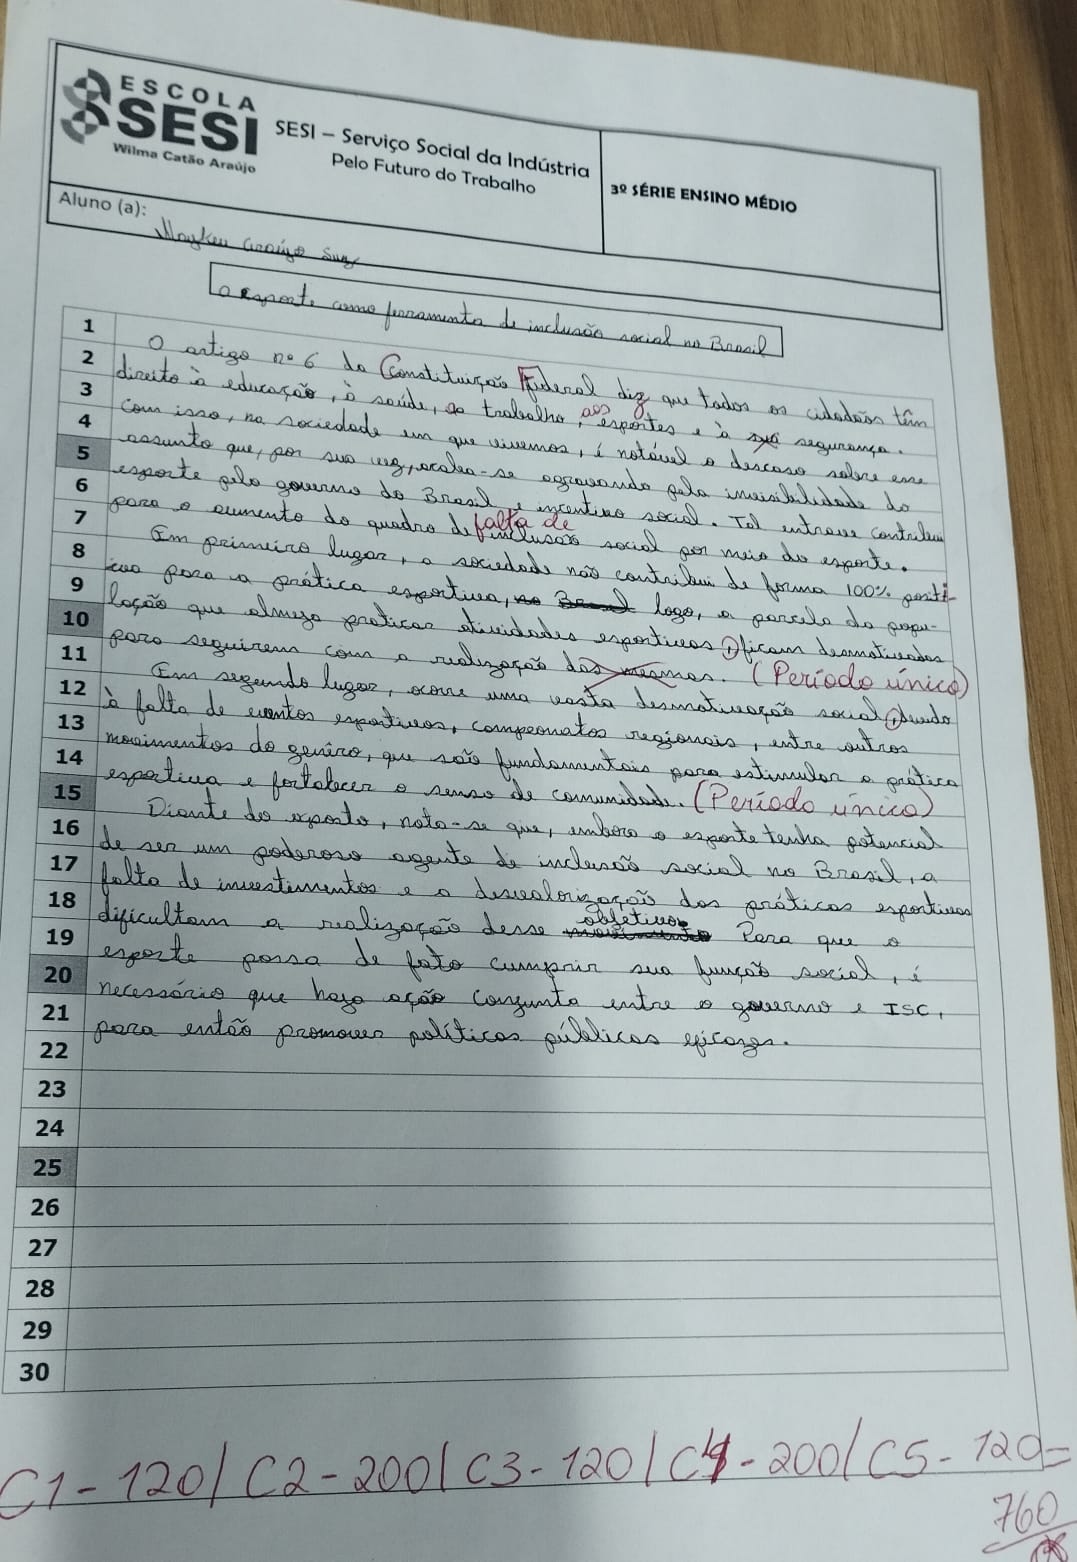 ESCOLA
SESI
Wilma Catão Araújo
SESI – Serviço Social da Indústria
Pelo Futuro do Trabalho
3º SÉRIE ENSINO MÉDIO
Aluno (a):
O esporte como ferramenta de inclusão social no Brasil
1 O artigo nº 6 da Constituição Federal diz que todos os cidadãos têm
2 direito à educação, à saúde, ao trabalho, aos esportes e à segurança.
3 Com isso, na sociedade em que vivemos, é notável o descaso sobre esse
4 assunto que, por sua vez, acaba-se agravando pela invisibilidade do
5 esporte pelo governo do Brasil e incentivo social. Tal entrave contribui
6 para o aumento do quadro de falta de inclusão social por meio do esporte.
7 Em primeiro lugar, a sociedade não contribui de forma 100% positi-
8 iva para a prática esportiva, logo, a parcela da popu-
9 lação que almeja praticar atividades esportivas, ficam desmotivados
10 para seguirem com a realização das mesmas. (Período único)
11 Em segundo lugar, ocorre uma vasta desmotivação social, devido
12 à falta de eventos esportivos, campeonatos regionais, entre outros
13 movimentos do gênero, que são fundamentais para estimular a prática
14 esportiva e fortalecer o senso de comunidade. (Período único)
15 Diante do exposto, nota-se que, embora o esporte tenha potencial
16 de ser um poderoso agente de inclusão social no Brasil, a
17 falta de investimentos e a desvalorização das práticas esportivas
18 dificultam a realização desse objetivo. Para que o
19 esporte possa de fato cumprir sua função social, é
20 necessário que haja ação conjunta entre o governo e ISC,
21 para então promover políticas públicas eficazes.
22
23
24
25
26
27
28
29
30
C1 - 120 / C2 - 200 / C3 - 120 / C4 - 200 / C5 - 120 =
760